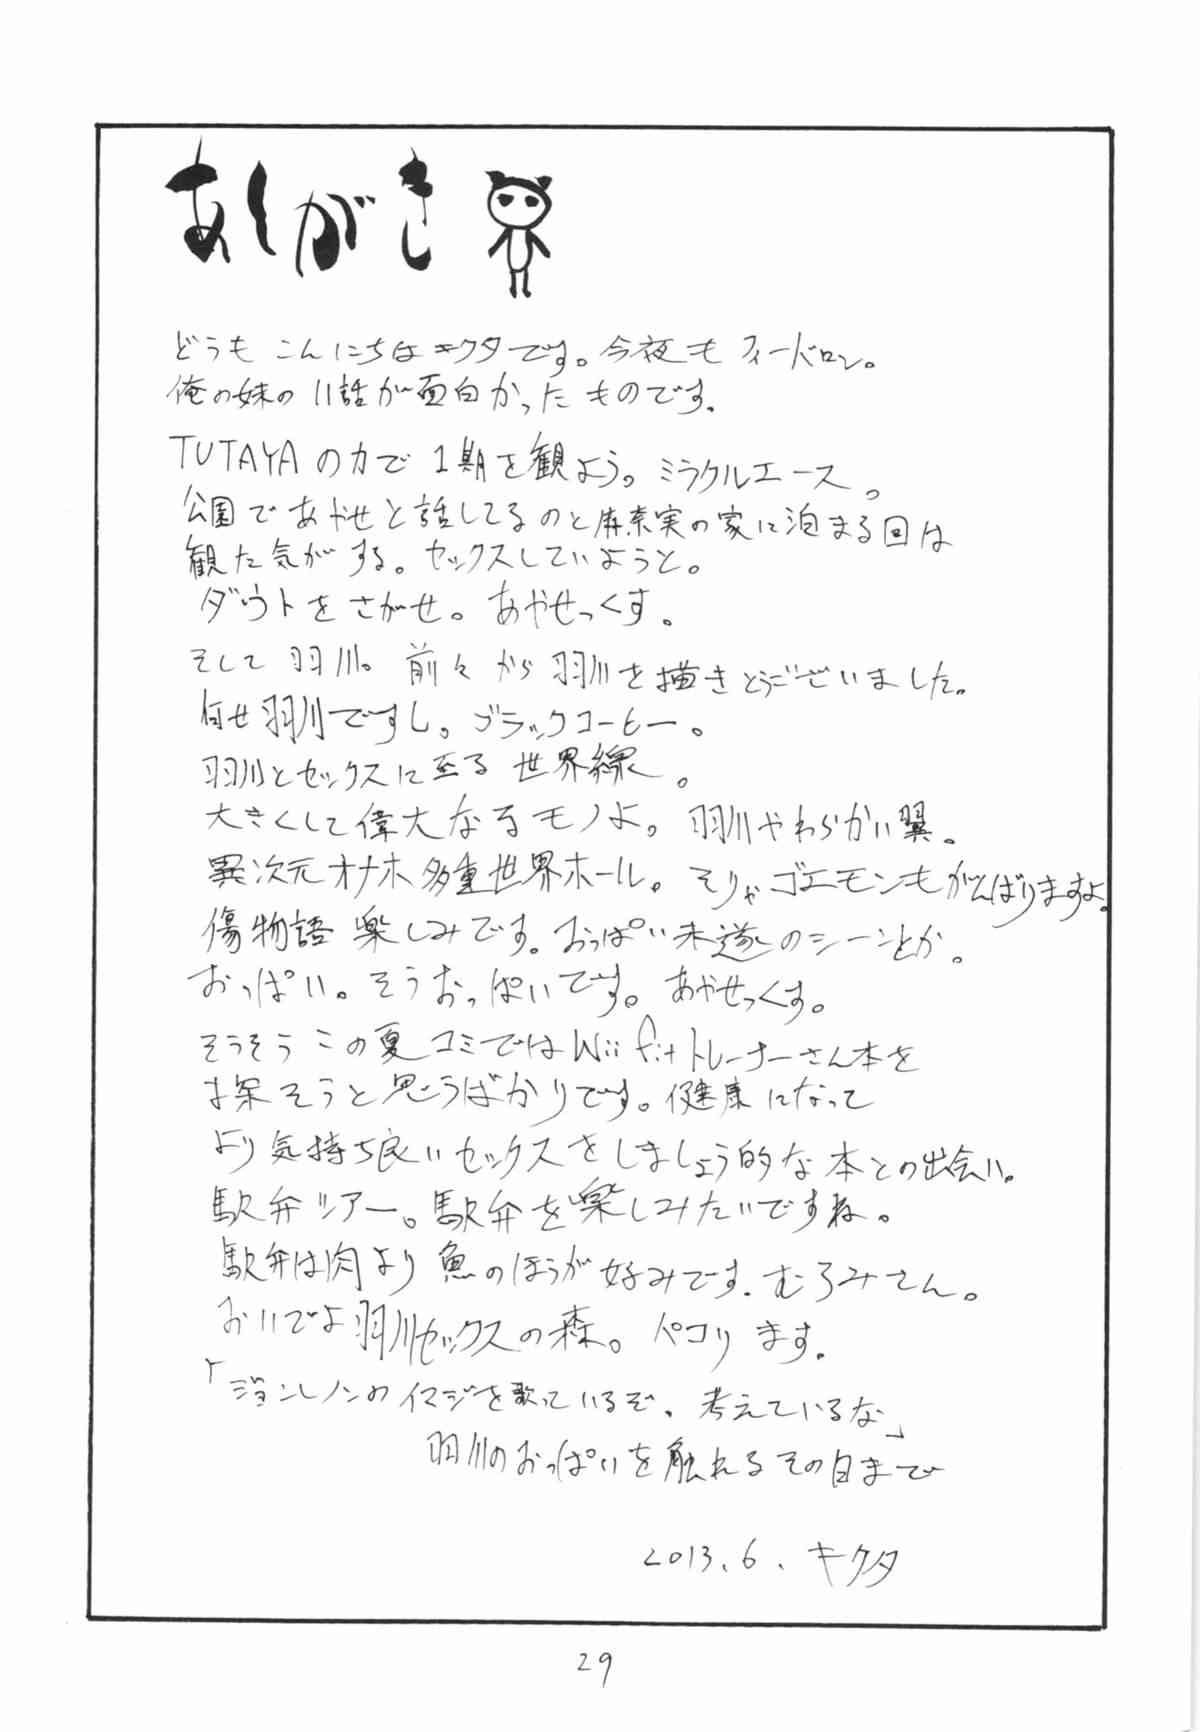 あとがき
どうも こんにちは キクタです。今夜も フィードロン。
俺の妹の 11話が面白かった ものです。
TUTAYAの力で 1期を観よう。ミラクルエース。
公園であやせと話してるのと麻奈実の家に泊まる回は
観た気がする。セックスしていようと。
ダウトをさがせ。あやせっくす。
そして羽川。前々から羽川を描きとうございました。
何せ羽川ですし。ブラックコーヒー。
羽川とセックスに至る世界線。
大きくして偉大なるモノよ。羽川やわらかい翼。
異次元オナホ多重世界ホール。そりゃゴエモンもがんばりますよ。
傷物語楽しみです。おっぱい未遂のシーンとか。
おっぱい。そうおっぱいです。あやせっくす。
そうそうこの夏コミではWii fitトレーナーさん本を
探そうと思うばかりです。健康になって
より気持ち良いセックスをしましょう的な本との出会い。
駅弁ツアー。駅弁を楽しみたいですね。
駅弁は肉より魚のほうが好みです。むろみさん。
おいでよ羽川セックスの森。パコります。
「ジョンレノンのイマジンを歌っているぞ。考えているな」
羽川のおっぱいを触れるその日まで
2013.6. キクタ
29